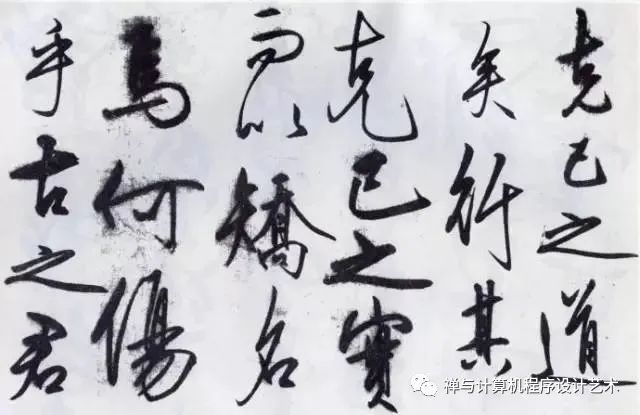 克己之道
矣行其
克己之實
而以矯名
焉何傷
乎古之君
禅与计算机程序设计艺术